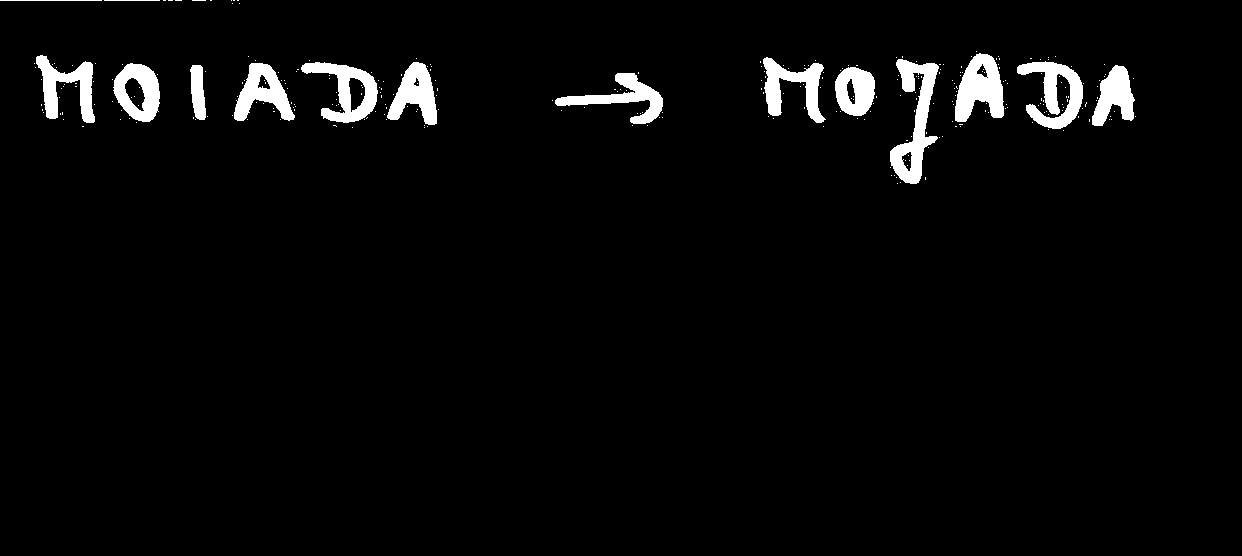 MOIADA → MOJADA